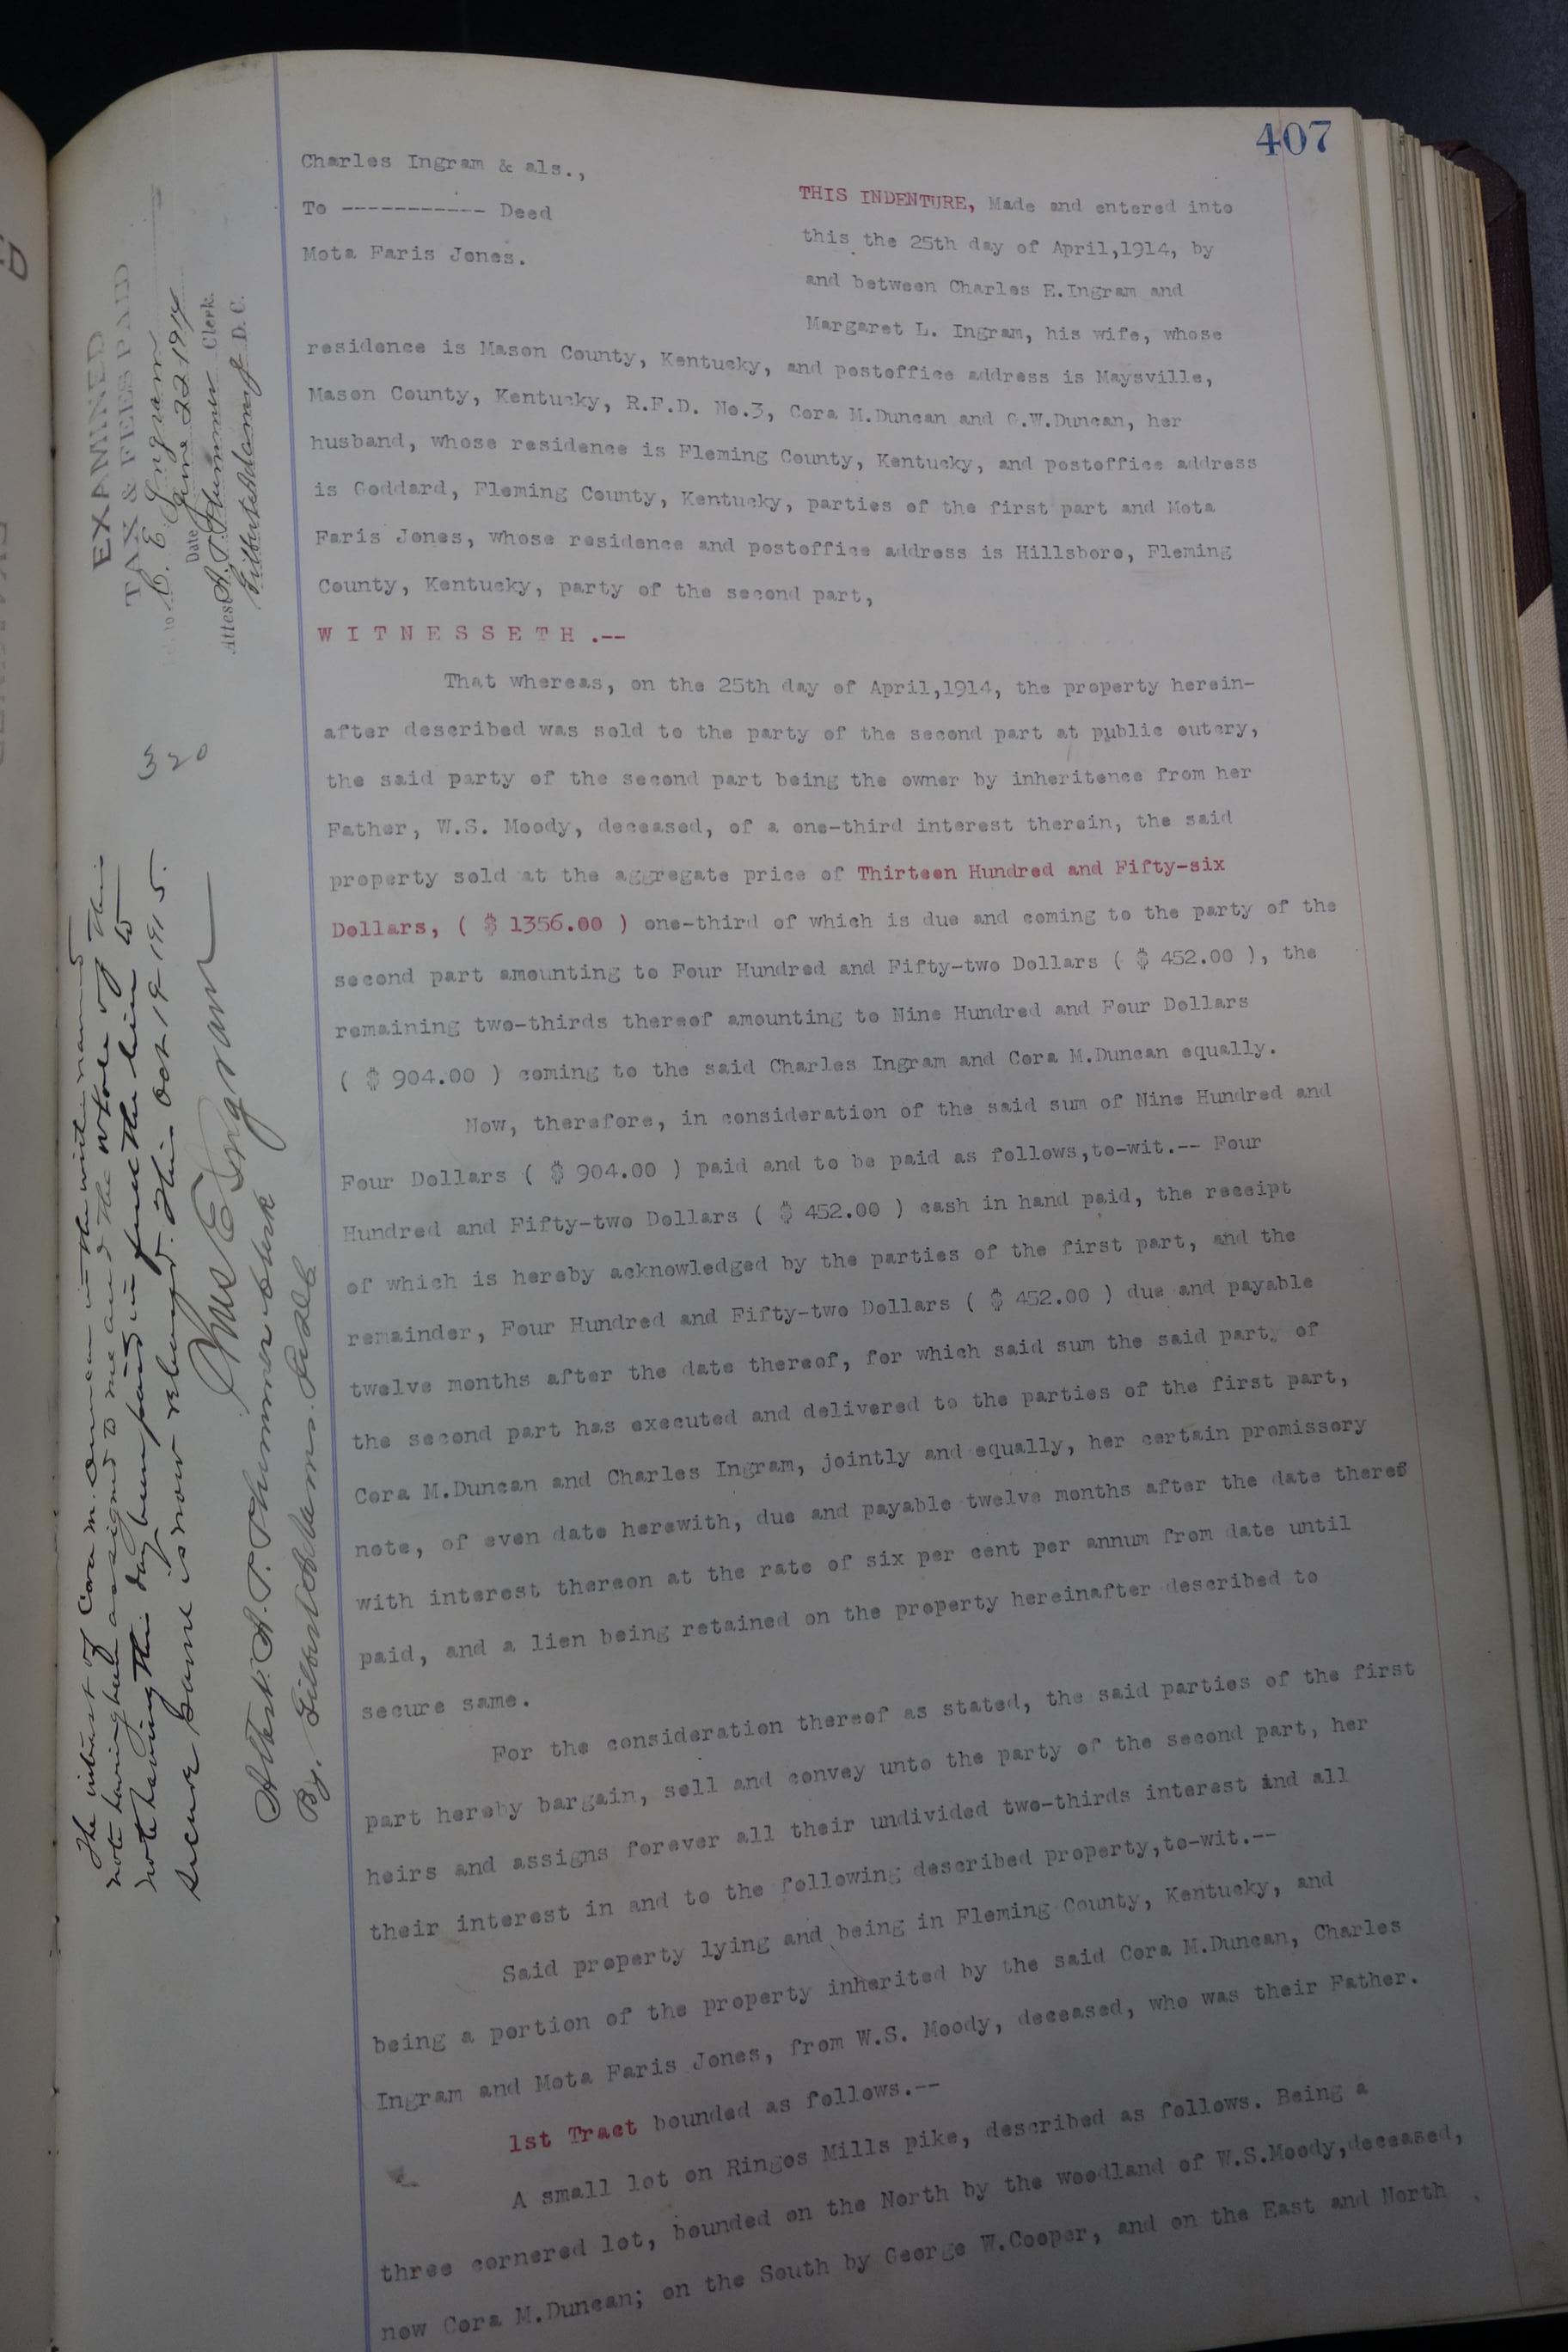 407
Charles Ingram & als.,
To ----------- Deed
Mota Faris Jones.
THIS INDENTURE, Made and entered into
this the 25th day of April,1914, by
and between Charles E.Ingram and
Margaret L. Ingram, his wife, whose
residence is Mason County, Kentucky, and postoffice address is Maysville,
Mason County, Kentucky, R.F.D. No.3, Cora M.Duncan and G.W.Duncan, her
husband, whose residence is Fleming County, Kentucky, and postoffice address
is Goddard, Fleming County, Kentucky, parties of the first part and Mota
Faris Jones, whose residence and postoffice address is Hillsboro, Fleming
County, Kentucky, party of the second part,
W I T N E S S E T H .--
That whereas, on the 25th day of April,1914, the property herein-
after described was sold to the party of the second part at public outcry,
the said party of the second part being the owner by inheritence from her
Father, W.S. Moody, deceased, of a one-third interest therein, the said
property sold at the aggregate price of Thirteen Hundred and Fifty-six
Dollars, ( $ 1356.00 ) one-third of which is due and coming to the party of the
second part amounting to Four Hundred and Fifty-two Dollars ( $ 452.00 ), the
remaining two-thirds thereof amounting to Nine Hundred and Four Dollars
( $ 904.00 ) coming to the said Charles Ingram and Cora M.Duncan equally.
Now, therefore, in consideration of the said sum of Nine Hundred and
Four Dollars ( $ 904.00 ) paid and to be paid as follows,to-wit.-- Four
Hundred and Fifty-two Dollars ( $ 452.00 ) cash in hand paid, the receipt
of which is hereby acknowledged by the parties of the first part, and the
remainder, Four Hundred and Fifty-two Dollars ( $ 452.00 ) due and payable
twelve months after the date thereof, for which said sum the said party of
the second part has executed and delivered to the parties of the first part,
Cora M.Duncan and Charles Ingram, jointly and equally, her certain promissory
note, of even date herewith, due and payable twelve months after the date thereof
with interest thereon at the rate of six per cent per annum from date until
paid, and a lien being retained on the property hereinafter described to
secure same.
For the consideration thereof as stated, the said parties of the first
part hereby bargain, sell and convey unto the party of the second part, her
heirs and assigns forever all their undivided two-thirds interest and all
their interest in and to the following described property,to-wit.--
Said property lying and being in Fleming County, Kentucky, and
being a portion of the property inherited by the said Cora M.Duncan, Charles
Ingram and Mota Faris Jones, from W.S. Moody, deceased, who was their Father.
1st Tract bounded as follows.--
A small lot on Ringos Mills pike, described as follows. Being a
three cornered lot, bounded on the North by the woodland of W.S.Moody,deceased,
now Cora M.Duncan; on the South by George W.Cooper, and on the East and North
EXAMINED
TAX & FEES PAID
to C. E. Ingram
Date June 22 1914
Attest A. T. Plummer Clerk.
Gilbert Adams D. C.
320
The interest of Cora M. Duncan in the within named
note having been assigned to me and the whole of this
note having this day been paid in full the lien to
secure same is now released. This Oct 19 1915.
Chas E Ingram
Attest: A. T. Plummer Clerk
By. Gilbert Adams